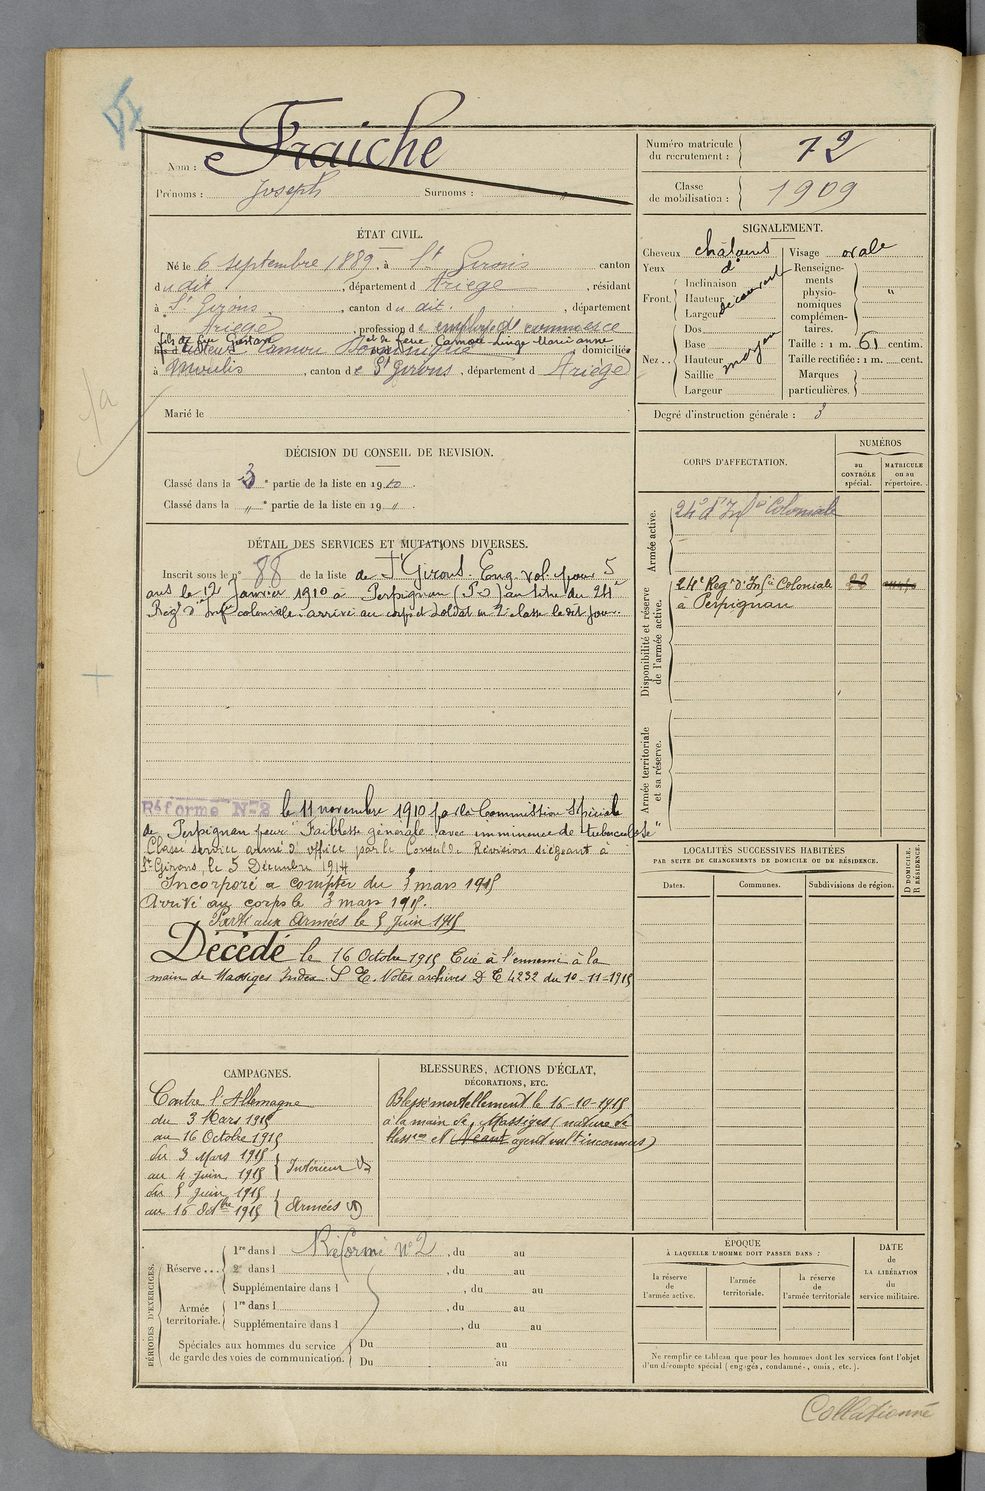 Nom : Fraiche
Prénoms : Joseph Surnoms : "
Numéro matricule du recrutement : 72
Classe de mobilisation : 1909
ÉTAT CIVIL.
Né le 6 septembre 1889, à St Girons canton
du dit, département d Ariege, résidant
à St Girons, canton du dit, département
d Ariege, profession d employé de commerce
fils de feu Gustave et de feue Camou Linge Marianne
Camou Dominique domicilié
à Moulis, canton de St Girons, département d Ariege
Marié le
SIGNALEMENT.
Cheveux châtains Visage ovale
Yeux do Renseignements physionomiques complémentaires. "
Front. Inclinaison Hauteur Largeur découvert
Nez.. Dos Base Hauteur Saillie Largeur moyen
Taille : 1 m. 61 centim.
Taille rectifiée : 1 m. cent.
Marques particulières.
Degré d'instruction générale : 3
DÉCISION DU CONSEIL DE REVISION.
Classé dans la 3e partie de la liste en 1910.
Classé dans la " e partie de la liste en 19 " .
CORPS D'AFFECTATION.
NUMÉROS
au CONTRÔLE spécial.
MATRICULE ou au répertoire.
Armée active.
24e d'Infie Coloniale
Disponibilité et réserve de l'armée active.
24e Regt d'Infie Coloniale
à Perpignan
Armée territoriale et sa réserve.
DÉTAIL DES SERVICES ET MUTATIONS DIVERSES.
Inscrit sous le no 88 de la liste de St Girons. Eng. vol. pour 5
ans le 12 janvier 1910 à Perpignan (P.O) au titre du 24e
Régt d'Infie coloniale. arrivé au corps et soldat de 2e classe le dit jour.
Réformé No 2 le 11 novembre 1910 par la Commission Spéciale
de Perpignan pour "Faiblesse générale avec imminence de tuberculose"
Classé service armé d'office par le Conseil de Révision siégeant à
St Girons, le 5 Décembre 1914
Incorporé a compter du 3 mars 1915
Arrivé au corps le 3 mars 1915.
Parti aux Armées le 5 Juin 1915
Décédé le 16 Octobre 1915 Tué à l'ennemi à la
main de Massiges Index. S E. Notes archives D E 4232 du 10-11-1915
LOCALITÉS SUCCESSIVES HABITÉES
PAR SUITE DE CHANGEMENTS DE DOMICILE OU DE RÉSIDENCE.
Dates. Communes. Subdivisions de région. D DOMICILE. R RÉSIDENCE.
CAMPAGNES.
Contre l'Allemagne
du 3 Mars 1915
au 16 Octobre 1915
du 3 Mars 1915
au 4 Juin 1915 Intérieur
du 5 Juin 1915
au 16 Octbre 1915 Armées
BLESSURES, ACTIONS D'ÉCLAT,
DÉCORATIONS, ETC.
Blessé mortellement le 16-10-1915
à la main de Massiges (nature de
blessres et Néant agent vult inconnus)
PÉRIODES D'EXERCICES.
Réserve ... 1re dans l Réformé no 2, du au
2e dans l , du au
Supplémentaire dans l , du au
Armée territoriale. 1re dans l , du au
Supplémentaire dans l , du au
Spéciales aux hommes du service de garde des voies de communication. Du au
Du au
ÉPOQUE
À LAQUELLE L'HOMME DOIT PASSER DANS :
la réserve de l'armée active.
l'armée territoriale.
la réserve de l'armée territoriale
DATE de LA LIBÉRATION du service militaire.
Ne remplir ce tableau que pour les hommes dont les services font l'objet
d'un décompte spécial (engagés, condamnés, omis, etc.).
Collationné